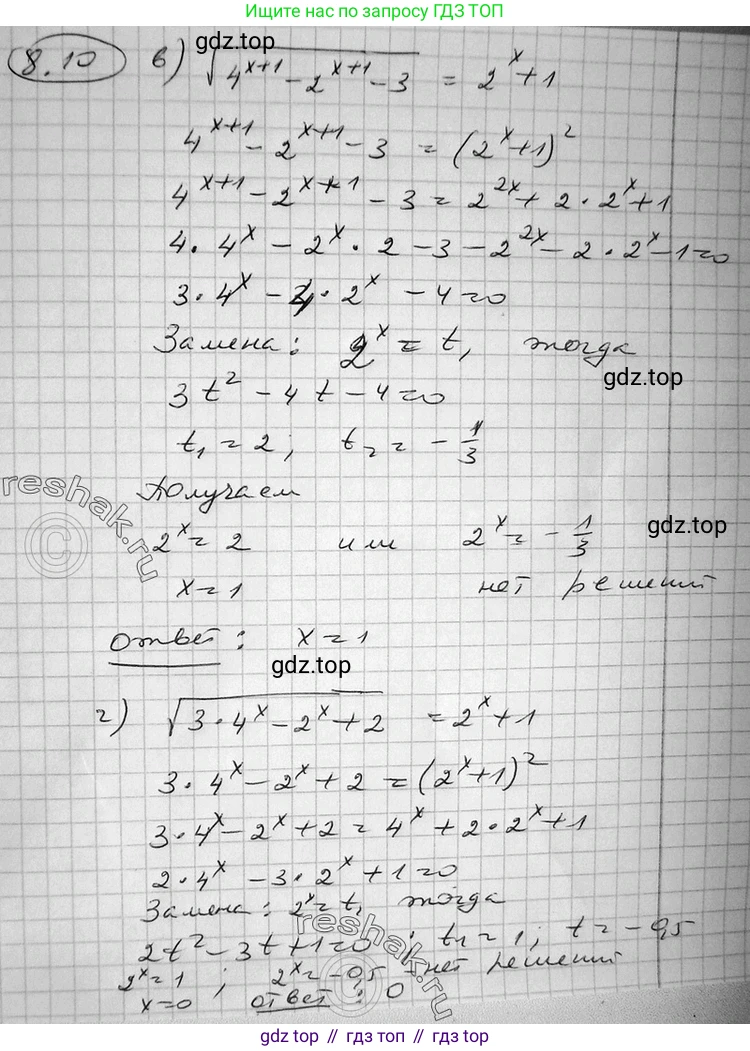 Ищите нас по запросу ГДЗ ТОП
gdz.top
8.10 в) √(4^(x+1) - 2^(x+1) - 3) = 2^x + 1
4^(x+1) - 2^(x+1) - 3 = (2^x + 1)^2
4^(x+1) - 2^(x+1) - 3 = 2^(2x) + 2 · 2^x + 1
4 · 4^x - 2^x · 2 - 3 - 2^(2x) - 2 · 2^x - 1 = 0
3 · 4^x - 4 · 2^x - 4 = 0
Замена: 2^x = t, тогда
gdz.top
3t^2 - 4t - 4 = 0
t₁ = 2; t₂ = -1/3
reshak.ru
Получаем
gdz.top
2^x = 2 или 2^x = -1/3
x = 1 нет решений
Ответ: x = 1
gdz.top
г) √(3 · 4^x - 2^x + 2) = 2^x + 1
3 · 4^x - 2^x + 2 = (2^x + 1)^2
3 · 4^x - 2^x + 2 = 4^x + 2 · 2^x + 1
2 · 4^x - 3 · 2^x + 1 = 0
Замена: 2^x = t, тогда
2t^2 - 3t + 1 = 0; t₁ = 1; t = -0,5
2^x = 1; 2^x = -0,5 - нет решений
x = 0 Ответ: 0
reshak.ru
gdz.top // гдз топ // gdz.top // гдз топ // gdz.top